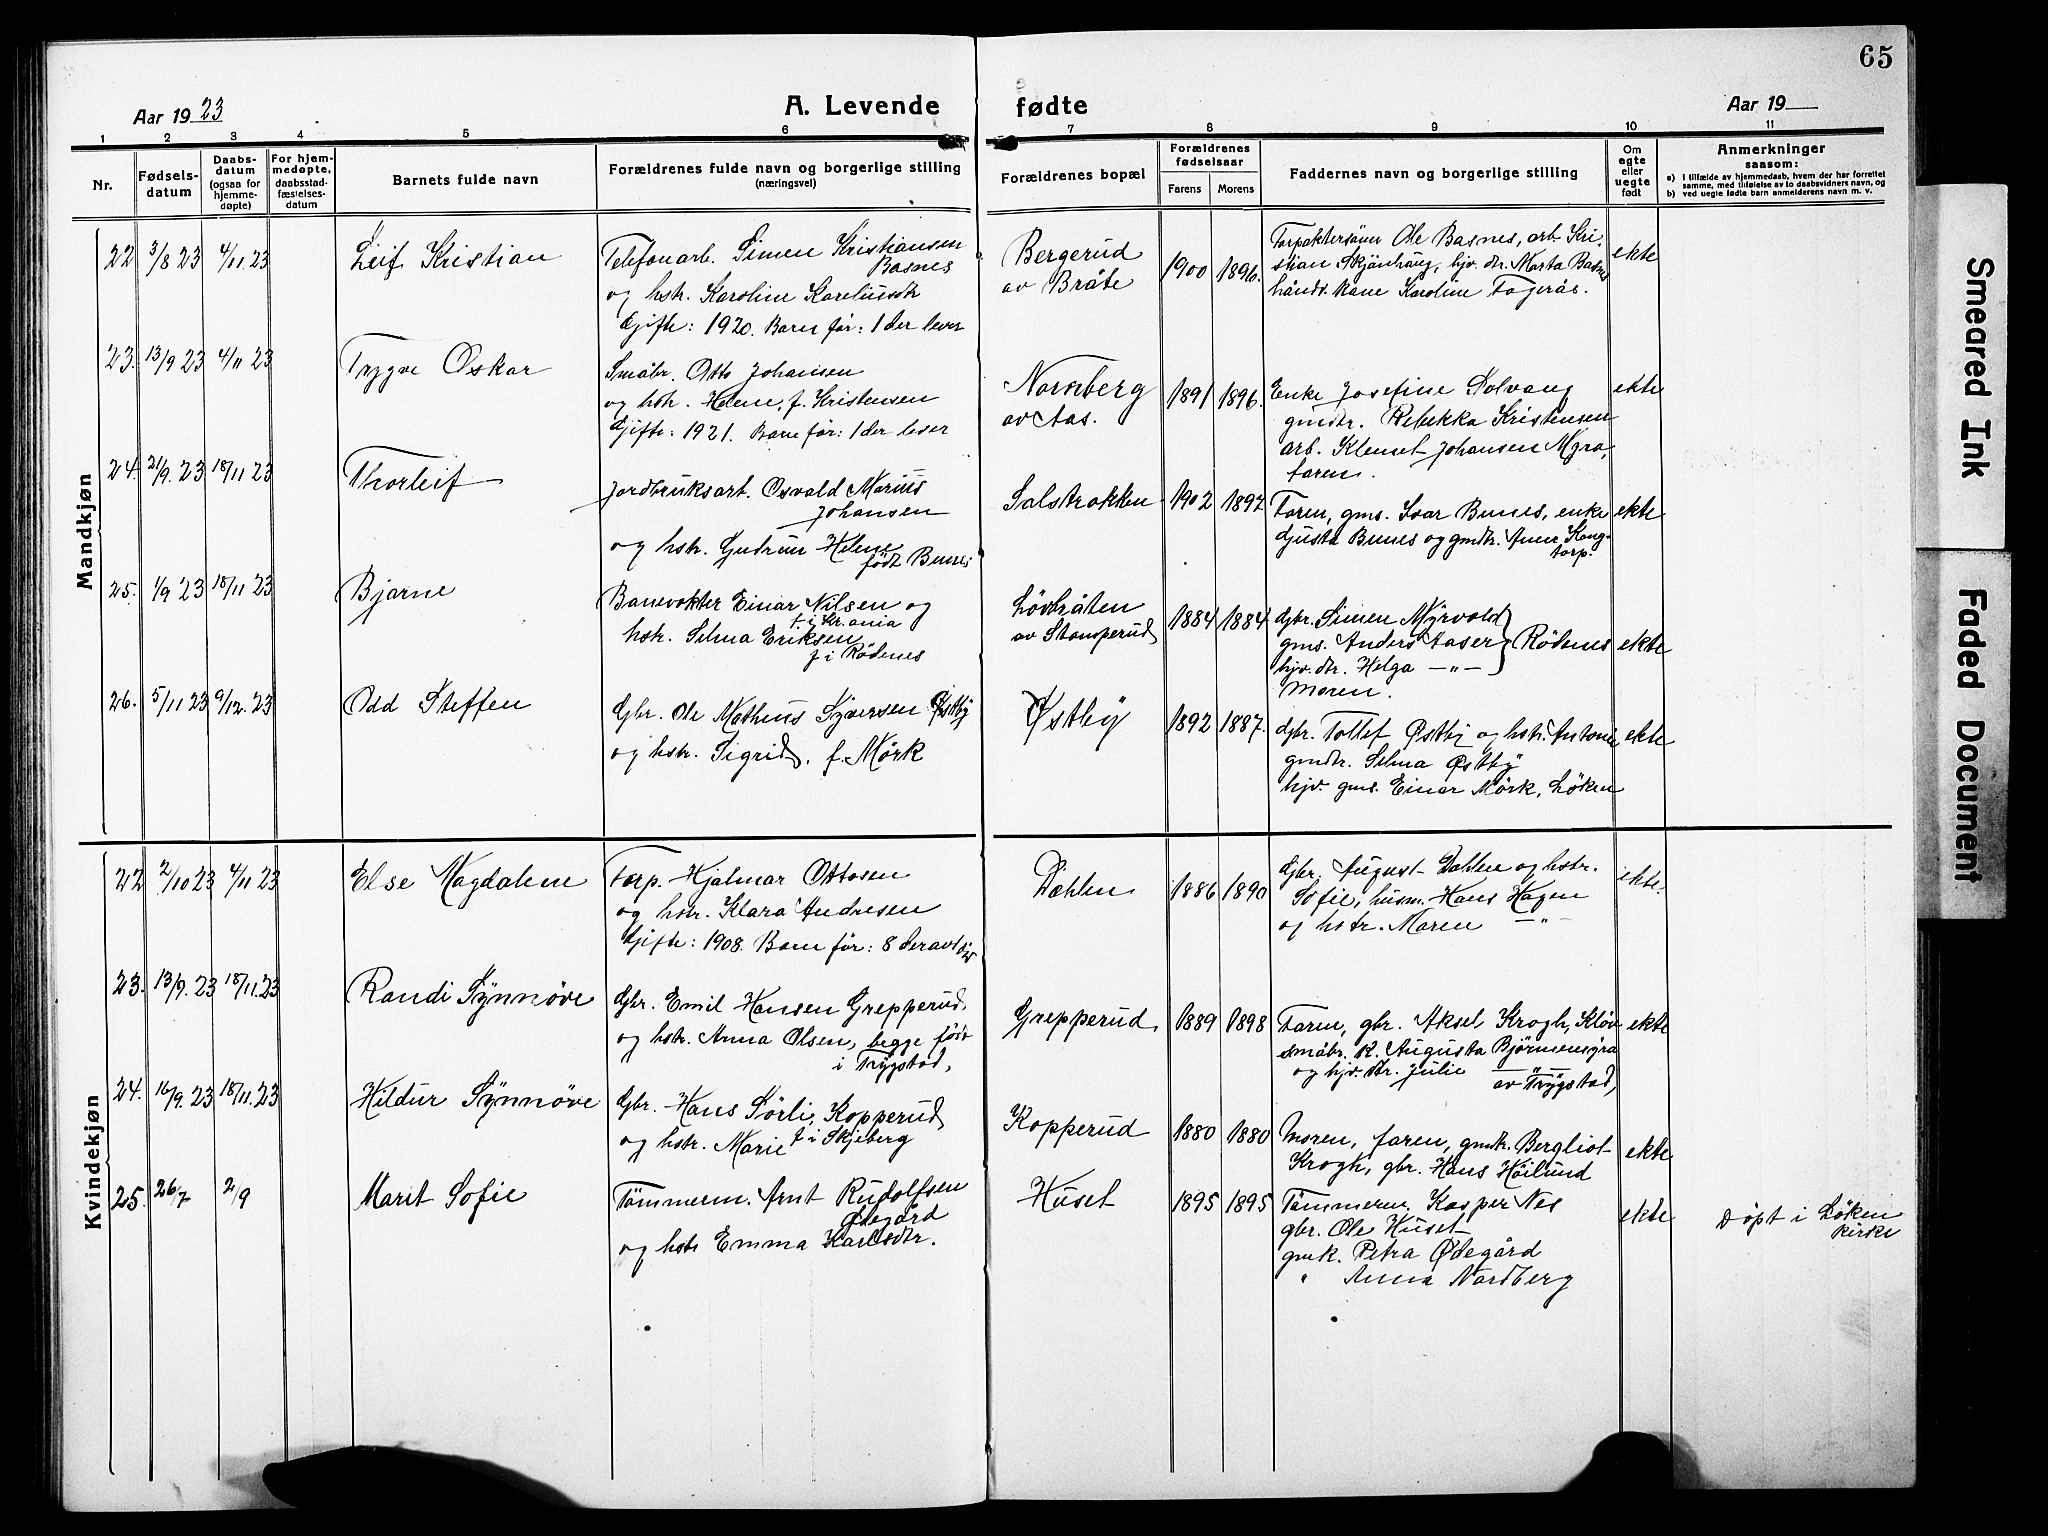 65
Aar 1923
A. Levende
fødte
Aar 19
1 2 3 4 5 6 7 8 9 10 11
Nr.
Fødsels-
datum
Daabs-
datum
(ogsaa for
hjemme-
døpte)
For hjem-
medøpte,
daabsstad-
fæstelses-
datum
Barnets fulde navn
Forældrenes fulde navn og borgerlige stilling
(næringsvei)
Forældrenes bopæl
Forældrenes
fødselsaar
Farens Morens
Faddernes navn og borgerlige stilling
Om
egte
eller
uegte
født
Anmerkninger
saasom:
a) I tilfælde av hjemmedaab, hvem der har forrettet
samme, med tilføielse av to daabsvidners navn, og
b) ved uegte fødte barn anmelderens navn m. v.
Mandkjøn
22 3/8 23 4/11 23
Leif Kristian
Telefonarb. Simen Kristiansen
Basnes
og hstr. Karoline Kareliusdtr
Gift: 1920. Barn før: 1 der lever
Bergerud
av Bråte
1900 1896.
Ole Basnes, arb. Kri-
stian Skjønhaug, hjv. dtr. Marta Basnes
hånds. kone Karoline Fagerås.
ekte
23. 13/9 23 4/11 23
Trygve Oskar
Småbr. Otto Johansen
og hstr. Helene, f. Kristensen
Gift: 1921. Barn før: 1 der lever
av Aas.
1891 1896.
Enke Josefine Solvang
gmdtr. Rebekka Kristensen
arb. Klemet Johansen Myra,
faren.
ekte
24. 21/9. 23 18/11 23
Thorleif
Jordbruksarb. Osvald Marius
Johansen
og hstr. Gudrun Helene
født Bunes
Salstrokken
1902 1897.
Faren, gms. Ivar Bunes, enke
Gusta Bunes og gmdtr. Anne Kong-
torp.
ekte
25. 1/9 23 18/11 23
Bjarne
Banevokter Einar Nilsen og
f. i Kr.ania
hstr. Selma Eriksen
f. i Rödenes
Lövbråten
av Stomperud
1884 1884
Gbr. Simen Myrvold
gms. Anders Aaser
hjv. dtr. Helga — „ —
Rödenes
Moren.
ekte
26. 5/11 23 9/12. 23
Odd Steffen
Gbr. Ole Matheus Syversen Østby
og hstr. Sigrid, f. Mörk
Østby
1892 1887.
Gbr. Tollef Østby og hstr. Antonie
gmdtr. Selma Østby
hjv. gms. Einar Mörk, Löken
ekte
Kvindekjøn
22 2/10 23 4/11 23
Else Magdalene
Torp. Hjalmar Ottosen
og hstr. Klara Andresen
Gift: 1908. Barn før: 8
Dahlen
1886 1890
Gbr. August Dahlen og hstr.
Sofie, husm. Hans Hagen
og hstr. Maren — „ —
ekte.
23. 13/9. 23 18/11. 23
Randi Synnöve
Gbr. Emil Hansen Grepperud,
og hstr. Anna Olsen, begge född
i Trygstad,
Grepperud,
1889 1898
Faren, gbr. Aksel Krogh, Klöv
småbr. k. Augusta Björnensmyra
og hjv. dtr. Julie — „ —
av Trygstad,
ekte
24. 16/9. 23 18/11. 23
Hildur Synnöve
Gbr. Hans Sörli, Kopperud,
og hstr. Marie f. i Skjeberg
Kopperud
1880 1880
Moren, faren, gmdtr. Bergliot
Krogh, gbr. Hans Höilund
ekte
25. 26/7 2/9
Marit Sofie
Tömmerm. Arnt Rudolfsen
Ødegård
og hstr Emma Karlsdtr.
Huset
1895 1895
Tömmerm. Kasper Nes
gbr. Ole Huset
gmk. Petra Ødegård
" Anna Nordberg
ekte
Döpt i Löken
kirke
Smeared Ink
Faded Document